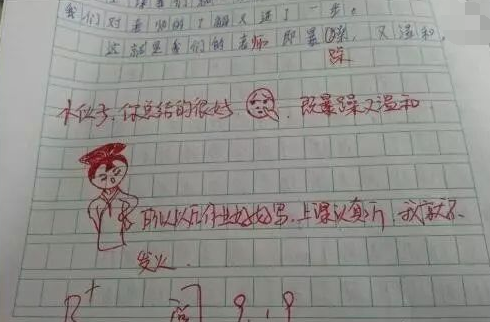 我们对老师的了解又进了一步。
这就是我们的老师即暴躁，又温和。
躁
小伙子，你总结的很好，既暴躁又温和
所以以后作业好好写，上课认真听，我就不
发火。
B+ 阅